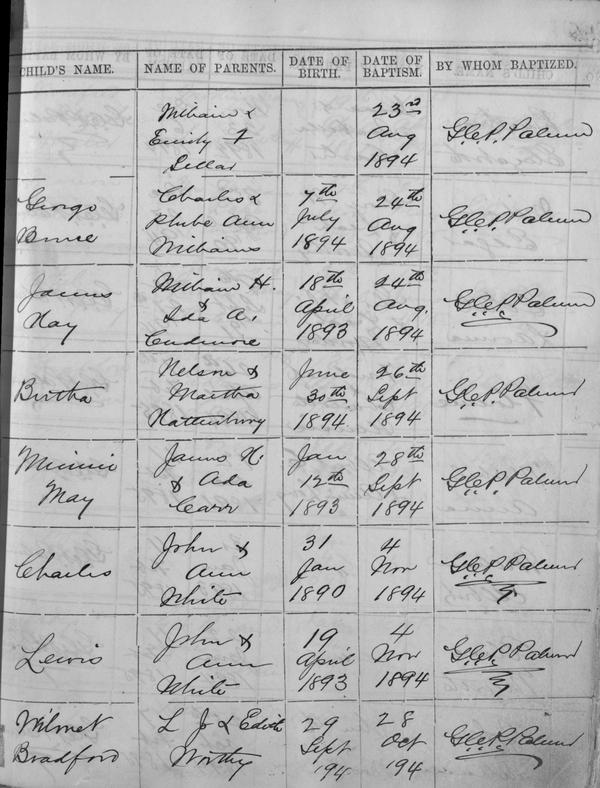 CHILD'S NAME. NAME OF PARENTS. DATE OF BIRTH. DATE OF BAPTISM. BY WHOM BAPTIZED.
William & 23rd
Emily F Aug
1894
George Charles & 7th 24th
Bruce Phebe Ann July Aug
Williams 1894 1894
James William H. 18th 24th
Hay & Ida A. April Aug.
Cudmore 1893 1894
Bertha Nelson & June 26th
Martha 30th Sept
Hattenbury 1894 1894
Minnie James H. Jan 28th
May & Ada 12th Sept
Carr 1893 1894
Charles John & 31 4
Ann Jan Nov
White 1890 1894
Lewis John & 19 4
Ann April Nov
White 1893 1894
Wilmet L J & Edith 29 28
Bradford Worthy Sept Oct
'94 '94